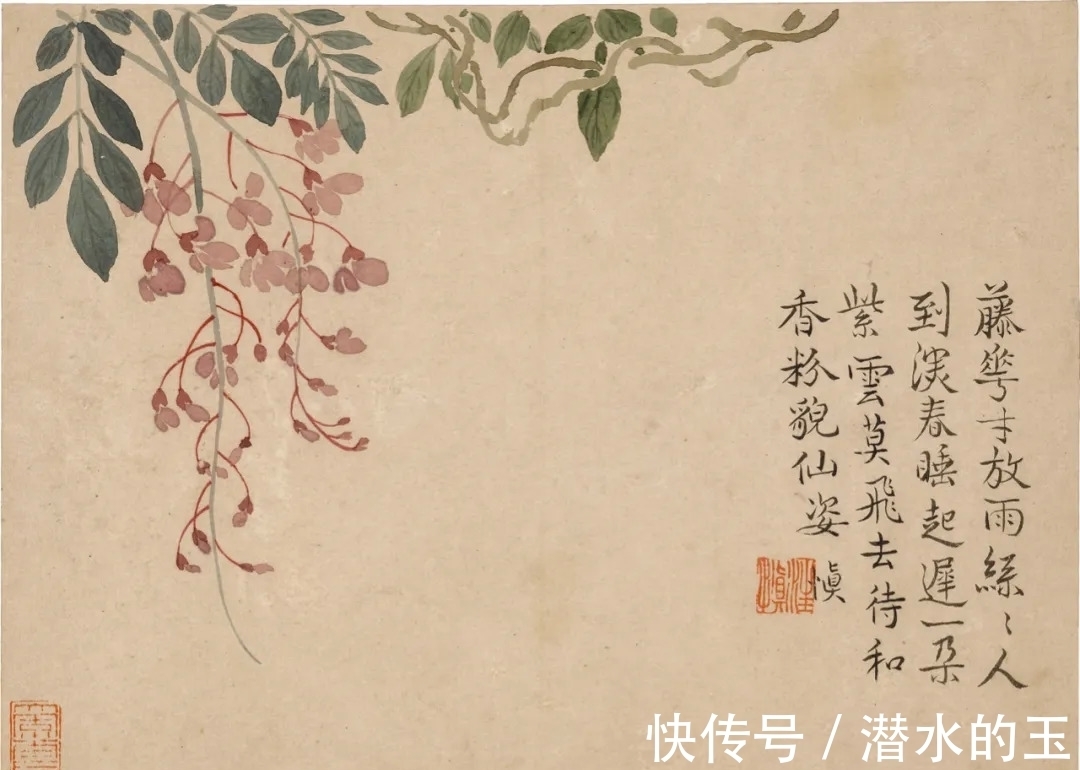 藤華才放雨絲〻人
到深春睡起遲一朵
紫雲莫飛去待和
香粉貌仙姿
慎
快传号 / 潜水的玉